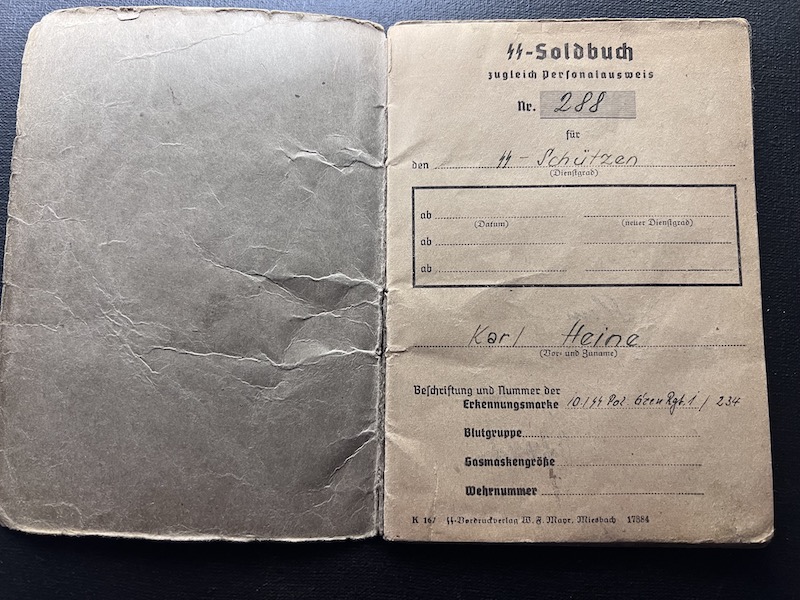 ᛋᛋ-Soldbuch
zugleich Personalausweis
Nr. 288
für
den ᛋᛋ - Schützen
(Dienstgrad)
ab
(Datum) (neuer Dienstgrad)
ab
ab
Karl Heine
(Vor- und Zuname)
Beschriftung und Nummer der
Erkennungsmarke 10./ᛋᛋ Pol. Gren Rgt. 1 / 234
Blutgruppe
Gasmaskengröße
Wehrnummer
K 167 ᛋᛋ-Vordruckverlag W. F. Mayr, Miesbach 17384